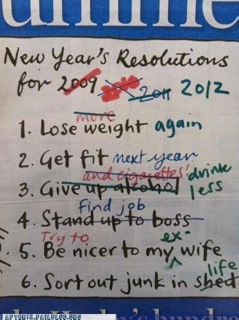 New Year's Resolutions
for 2009 2010 2011 2012
more
1. Lose weight again
2. Get fit next year
and cigarettes! drink
3. Give up alcohol less
Find job
4. Stand up to boss
Try to ex-
5. Be nicer to my wife
life
6. Sort out junk in shed